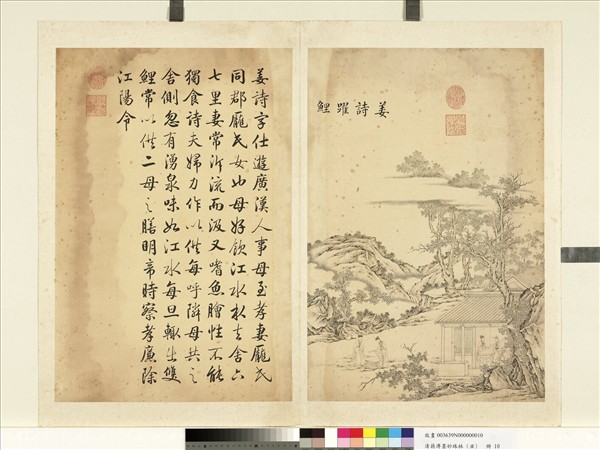 姜詩躍鯉
姜詩字仕遊廣漢人事母至孝妻龐氏
同郡龐氏女也母好飲江水水去舍六
七里妻常泝流而汲又嗜魚膾性不能
獨食詩夫婦力作以供每呼隣母共之
舍側忽有湧泉味如江水每旦輒出雙
鯉常以供二母之膳明帝時察孝廉除
江陽令
故畫 003639N000000010